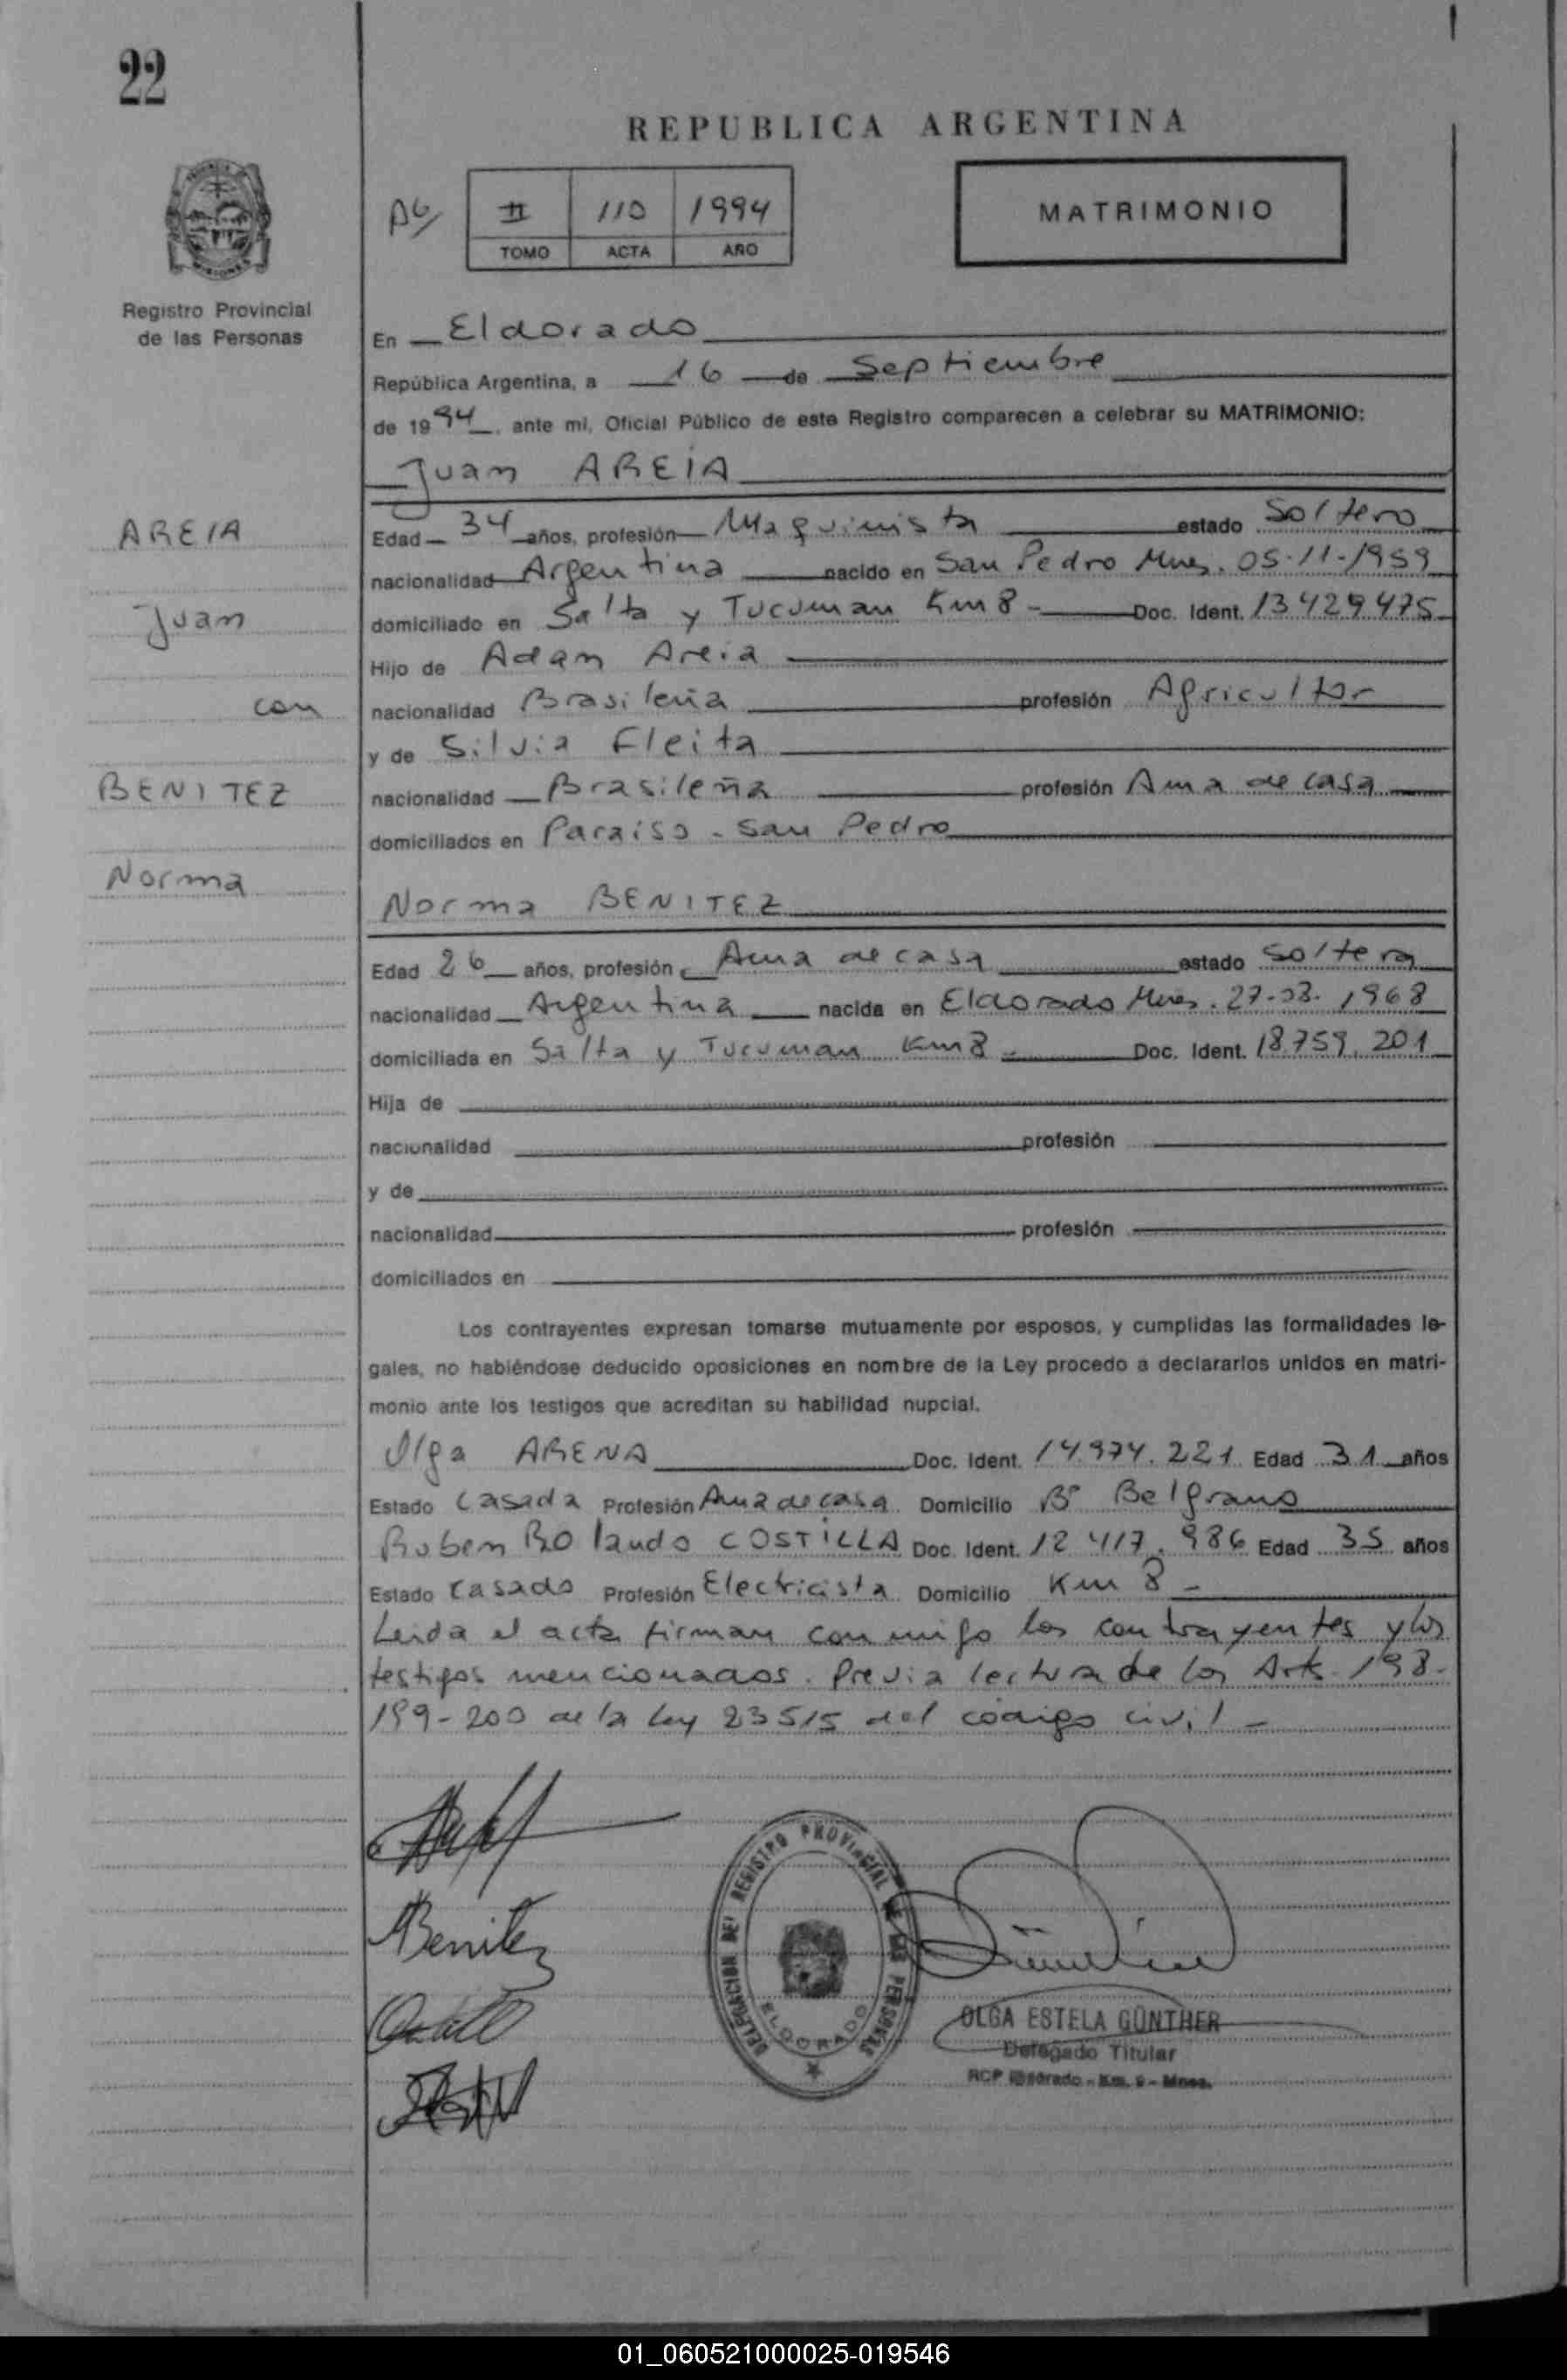 22
REPUBLICA ARGENTINA
II 110 1994
TOMO ACTA AÑO
MATRIMONIO
Registro Provincial
de las Personas
En Eldorado
República Argentina, a 16 de Septiembre
de 1994, ante mi, Oficial Público de este Registro comparecen a celebrar su MATRIMONIO:
Juan AREIA
AREIA
Juan
con
BENITEZ
Norma
Edad 34 años, profesión Maquinista estado Soltero
nacionalidad Argentina nacido en San Pedro Mnes. 05-11-1959
domiciliado en Salta y Tucuman Km 8 - Doc. Ident. 13.429.475
Hijo de Adan Areia
nacionalidad Brasileña profesión Agricultor
y de Silvia Fleita
nacionalidad Brasileña profesión Ama de casa
domiciliados en Paraiso - San Pedro
Norma BENITEZ
Edad 26 años, profesión Ama de casa estado Soltera
nacionalidad Argentina nacida en Eldorado Mnes. 27-08-1968
domiciliada en Salta y Tucuman Km 8 - Doc. Ident. 18.759.201
Hija de
nacionalidad profesión
y de
nacionalidad profesión
domiciliados en
Los contrayentes expresan tomarse mutuamente por esposos, y cumplidas las formalidades le-
gales, no habiéndose deducido oposiciones en nombre de la Ley procedo a declararlos unidos en matri-
monio ante los testigos que acreditan su habilidad nupcial.
Olga ARENA Doc. Ident. 14.974.221 Edad 31 años
Estado Casada Profesión Ama de casa Domicilio B° Belgrano
Ruben Rolando COSTILLA Doc. Ident. 12.417.986 Edad 35 años
Estado Casado Profesión Electricista Domicilio Km 8 -
Leida el acta firman conmigo los contrayentes y los
testigos mencionados. Previa lectura de los Arts. 198-
199-200 de la Ley 23515 del código civil -
Benitez
DELEGACION DEL REGISTRO PROVINCIAL DE LAS PERSONAS
ELDORADO
OLGA ESTELA GÜNTHER
Delegado Titular
RCP Eldorado - Km. 9 - Mnes.
01_060521000025-019546